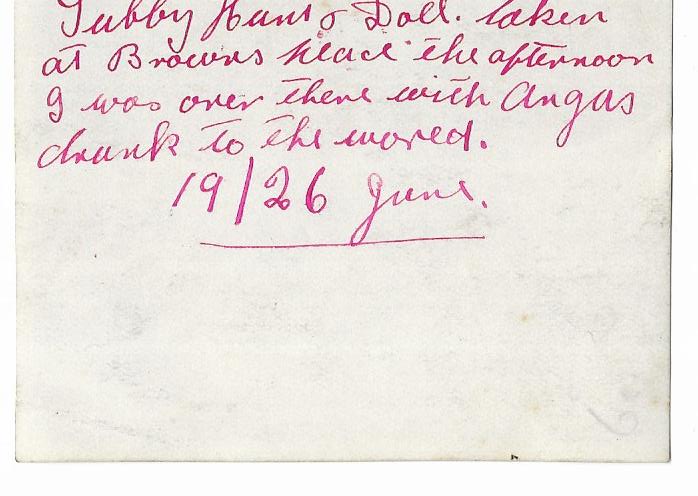 Tubby Hunt & Doll. taken
at Browns place the afternoon
I was over there with Angas
drunk to the world.
19/26 June.